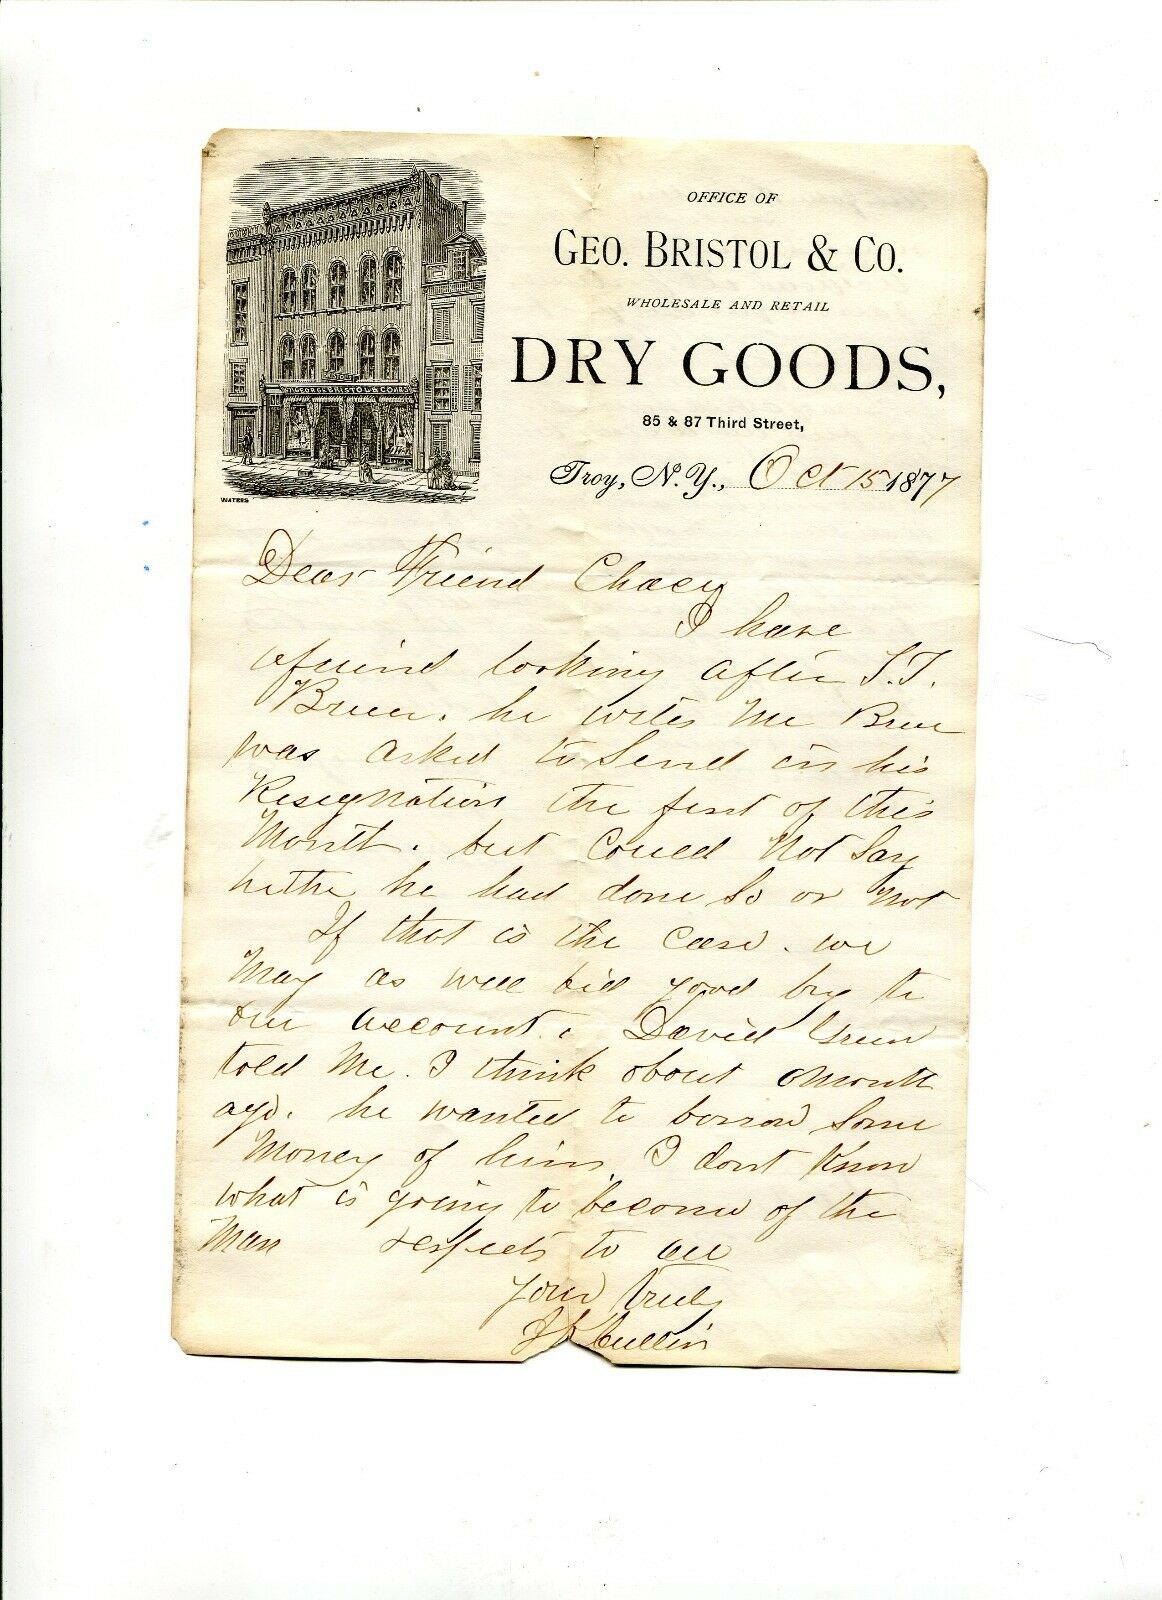 OFFICE OF
GEO. BRISTOL & CO.
WHOLESALE AND RETAIL
DRY GOODS,
85 & 87 Third Street,
Troy, N.Y., Oct 15 1877
GEORGE BRISTOL & CO
WATERS
Dear Friend
I have
a friend looking after
he writes me
was asked to Send in his
Resignation the first of this
Month. but Could Not Say
he had done So or Not
If that is the Case. we
May as well bid good by to
our account. David Green
told Me. I think about a Month
ago. he wanted to borrow Some
Money of him, I dont Know
what is going to become of the
Man respects to all
Yours truly
Cullin